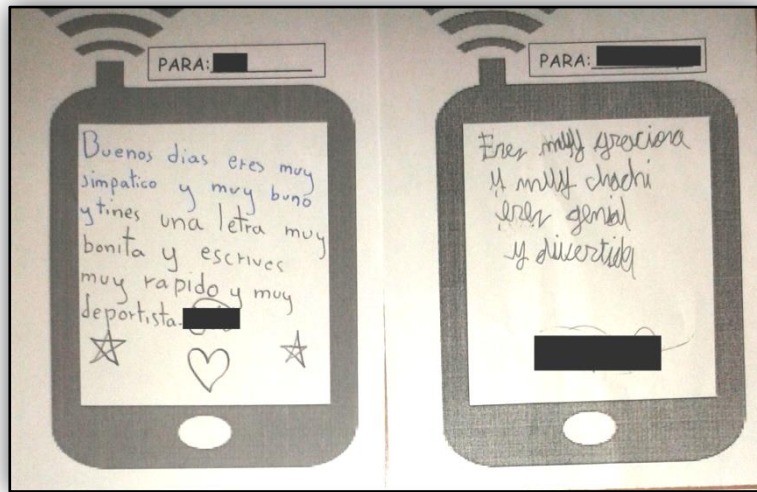 PARA:
Buenos dias eres muy
simpatico y muy buno
y tines una letra muy
bonita y escrives
muy rapido y muy
deportista
PARA:
Eres muy graciosa
y muy chachi
eres genial
y divertida